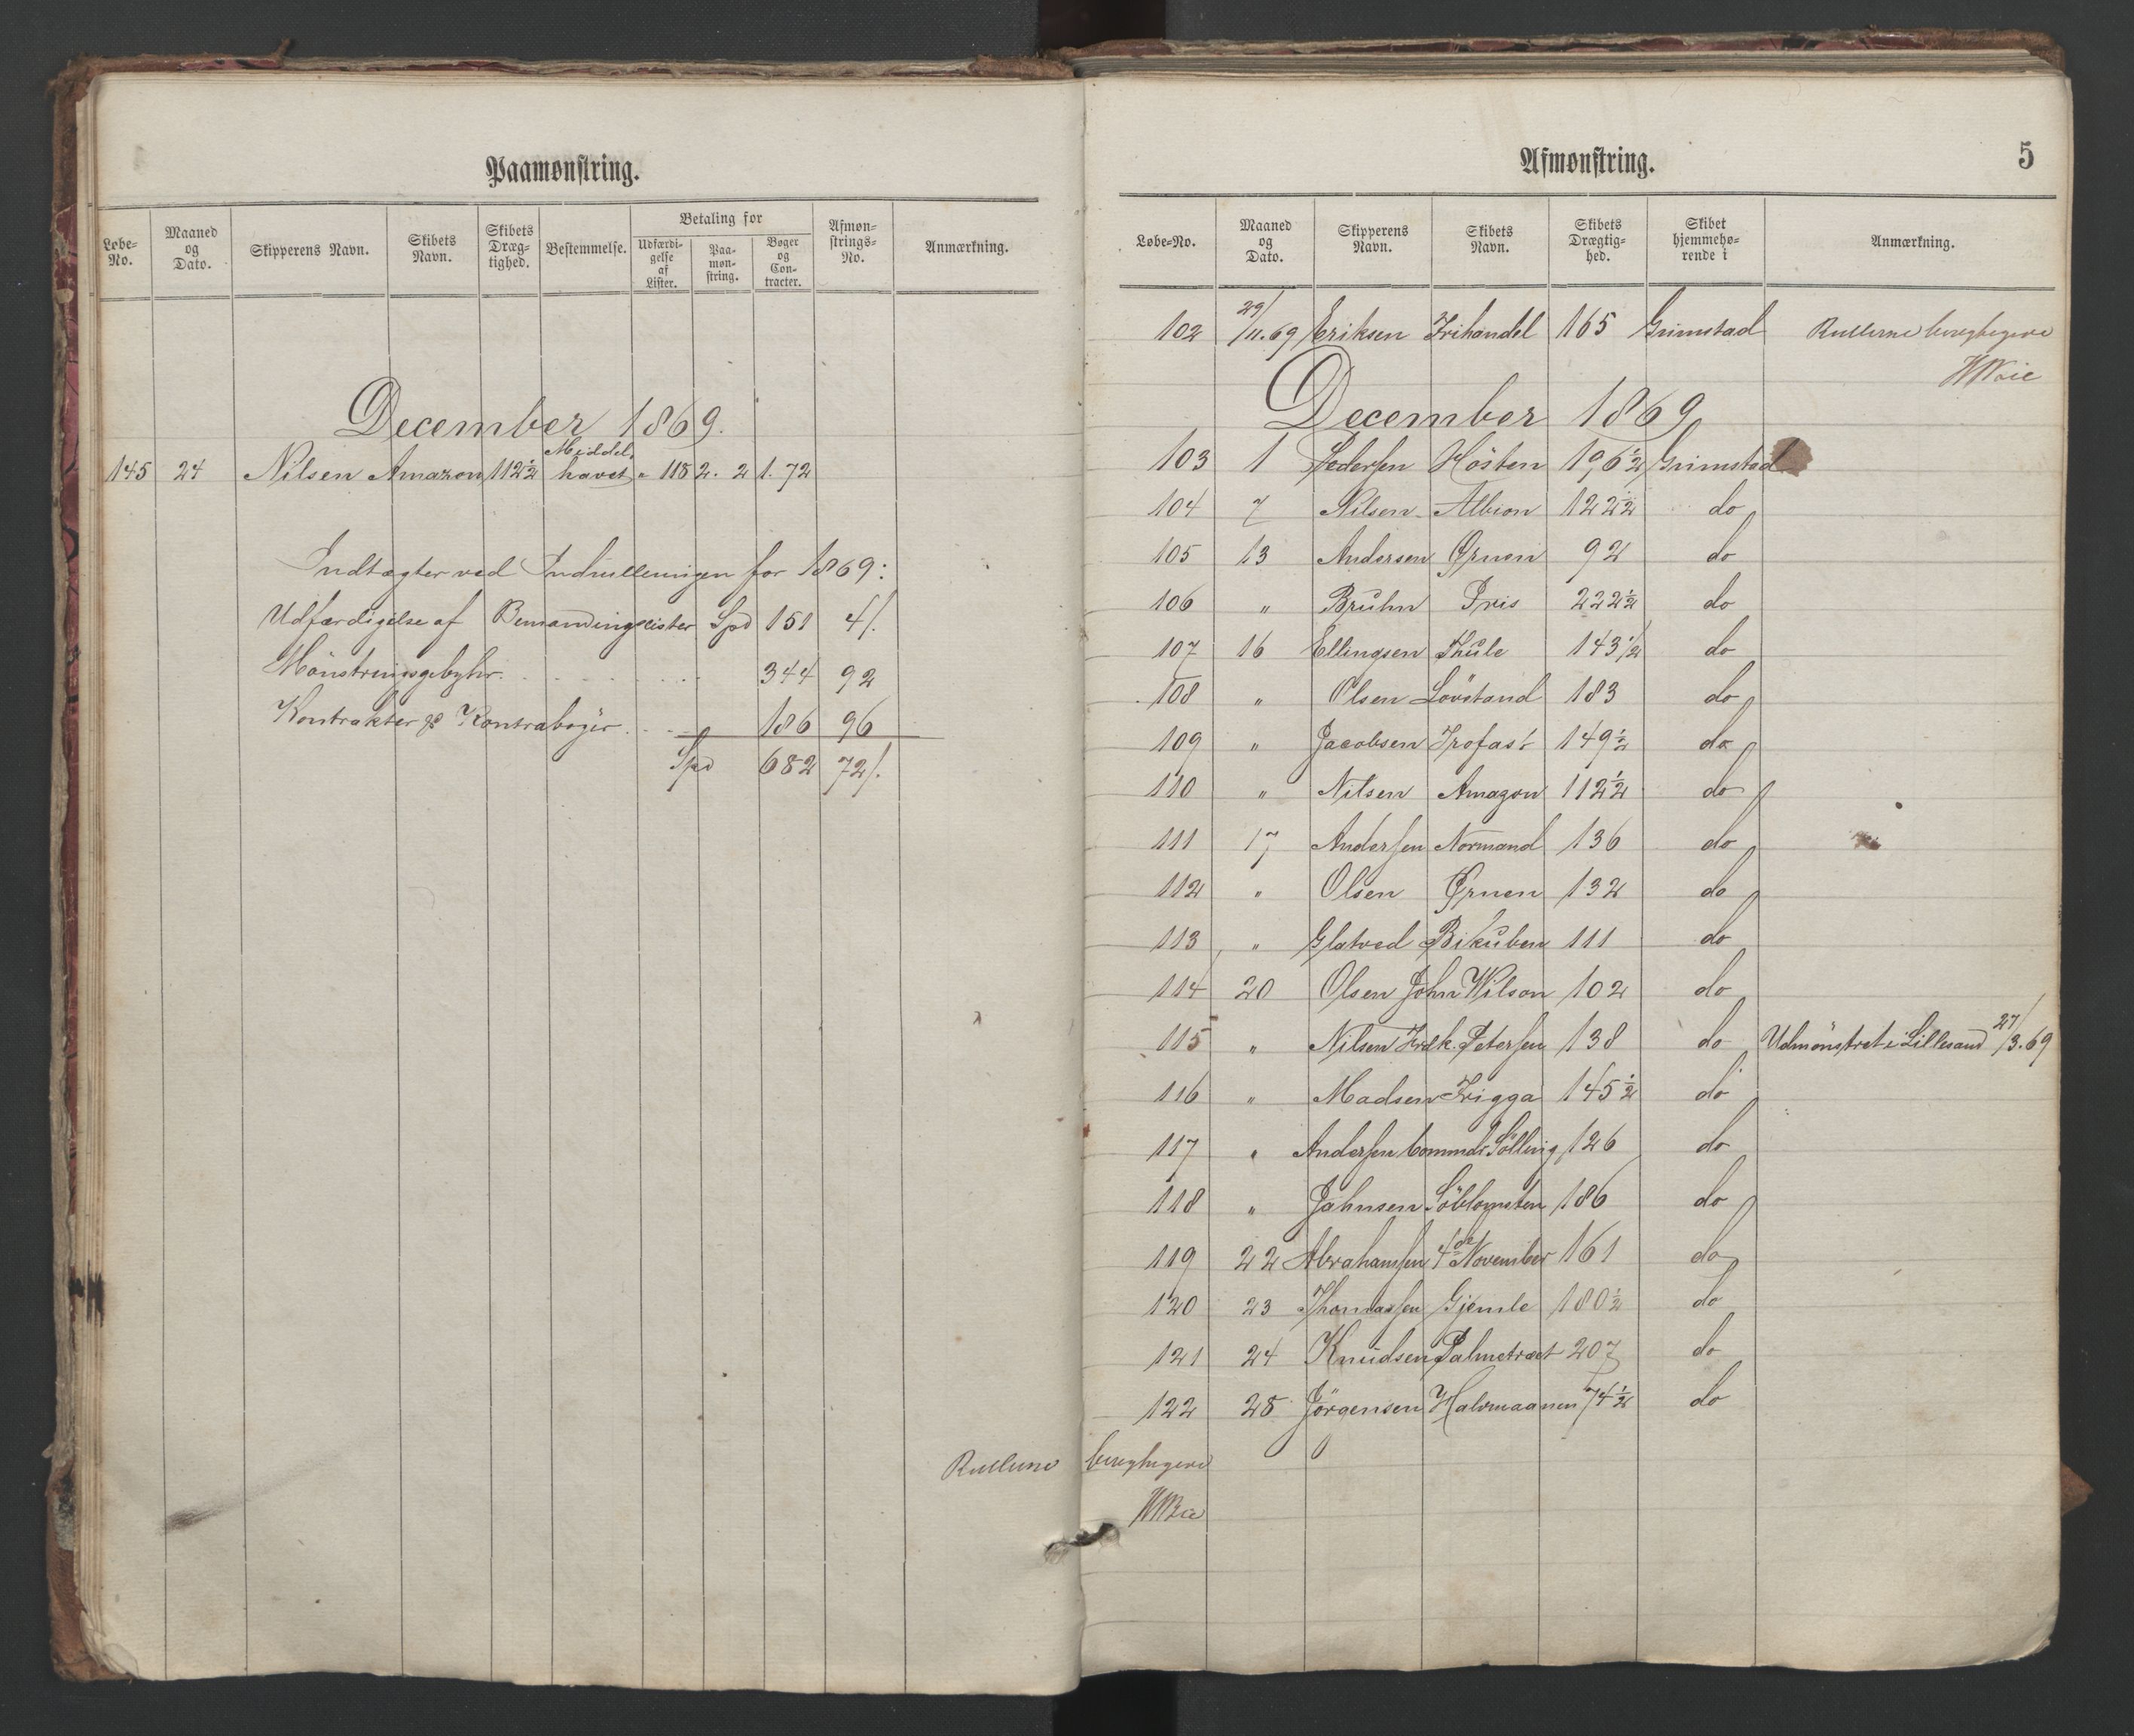 Paamønstring.
Løbe-No. Maaned og Dato. Skipperens Navn. Skibets Navn. Skibets Dræg-tighed. Bestemmelse. Betaling for Udfærdi-gelse af Lister. Paa-møn-string. Bøger og Con-tracter. Afmøn-strings-No. Anmærkning.
December 1869.
145 24 Nilsen Amazon 112½ Middel, havet " 118 2. 2 1. 72
Indtægter ved Indrulleringen for 1869:
Udfærdigelse af Bemandingslister Spd 151 4/.
Mönstringsgebyhr. . . . . . . . 344 92
Kontrakter & Kontrabøger . . . 186 96
Spd 682 72/.
Afmønstring. 5
Løbe-No. Maaned og Dato. Skipperens Navn. Skibets Navn. Skibets Drægtig-hed. Skibet hjemmehø-rende i Anmærkning.
102 29/11.69 Eriksen Frihandel 165 Grimstad Rullerne
December 1869
103 1 Pedersen Hösten 196½ Grimstad
104 7 Nilsen Albion 122½ do
105 13 Andersen Ørnen 92 do
106 " Bruhn Iris 222½ do
107 16 Ellingsen Thule 143½ do
108 " Olsen Lövstand 183 do
109 " Jacobsen Trofast 149½ do
110 " Nilsen Amazon 112½ do
111 17 Andersen Normand 136 do
112 " Olsen Ørnen 132 do
113 " Glatved Bikuben 111 do
114 20 Olsen John Wilson 102 do
115 " Nilsen Fredk. Petersen 138 do Udmönstret i Lillesand 27/3.69
116 " Madsen Frigga 145½ do
117 " Andersen Commdr Sölling 126 do
118 " Jahnsen Söblomsten 186 do
119 22 Abrahamsen 4de November 161 do
120 23 Thomassen Gjemle 180½ do
121 24 Knudsen Palmetræet 207 do
122 28 Jörgensen Halvmaanen 74½ do
Rullerne